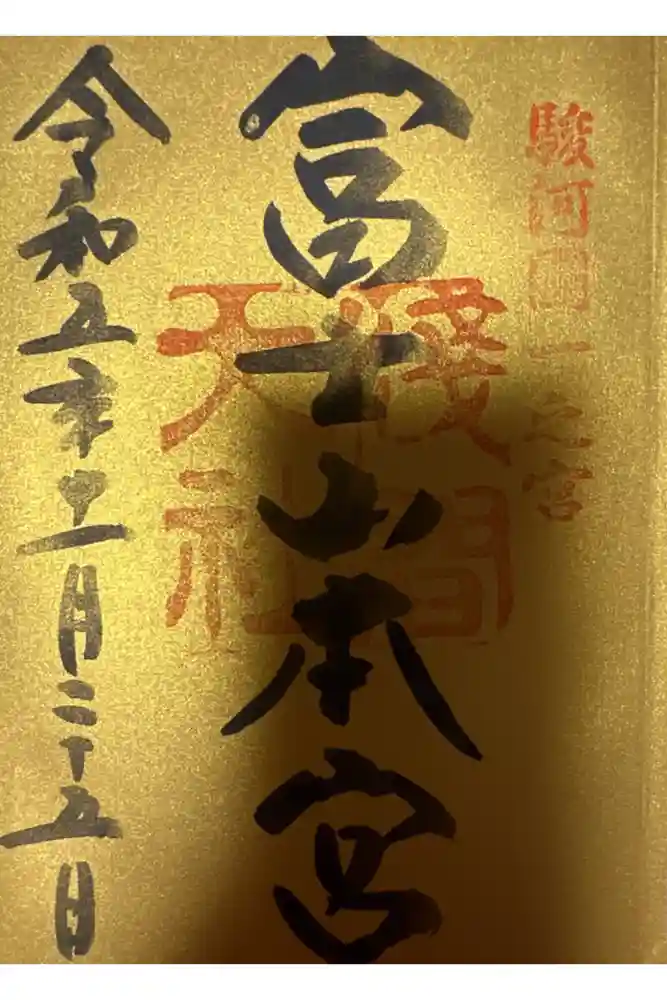 駿河國一之宮
富士山本宮
淺間
大社
令和五年十一月二十五日